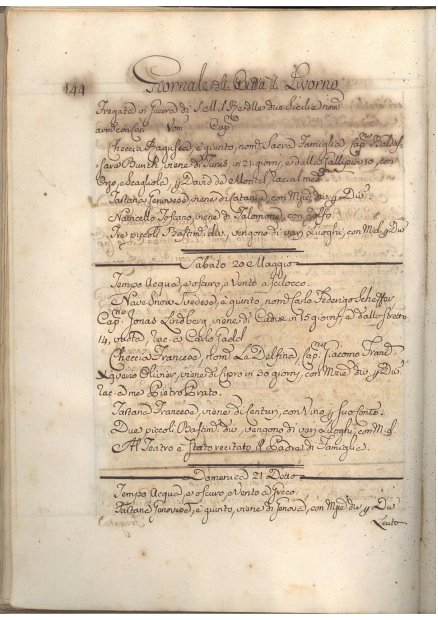 144
Giornale della Città di Livorno
Fregata in guerra di S. M. il Re delle due Sicilie
Checcia Ragusea, è giunto, nom: Sacra Famiglia, Cap:
viene di Tunis in 21 giorni, e dalla Gallipusa, con
Grano, e Scagliola, p David de Montel
Tartana Genovese, viene di Catania, con Mcie div: p Div:
Navicello Toscano, viene di Talomone, con Zolfo.
Tre piccoli Bastim: di div: vengono di varj Luoghi, con Md: p Div:
Sabato 20 Maggio
Tempo Acqua, e oscuro, Vento a Scilocco.
Nave Snow Svedese, è giunto, nom: Carlo Federigo Scheffer
Cap: Jonas Lindberg, viene di Cadice in 15 giorni, e dallo Stretto
14, vuota, rac: a Carlo
Checcia Francese, nom: La Delfina Cap: Giacomo
Olivier, viene di Cipro in 50 giorni, con Mcie div: p Div:
rac: a me Pietro Prato.
Tartana Francese, viene di Centuri, con Vino p suo conto.
Due piccoli Bastim: div: vengono di varj Luoghi, con M. d.
Al Teatro è stato recitato il Padre di Famiglia.
Domenica 21 Detto
Tempo Acqua, e oscuro, Vento a Greco.
Tartana Genovese, è giunto, viene di Genova, con Mcie div: p Div:
Leuto